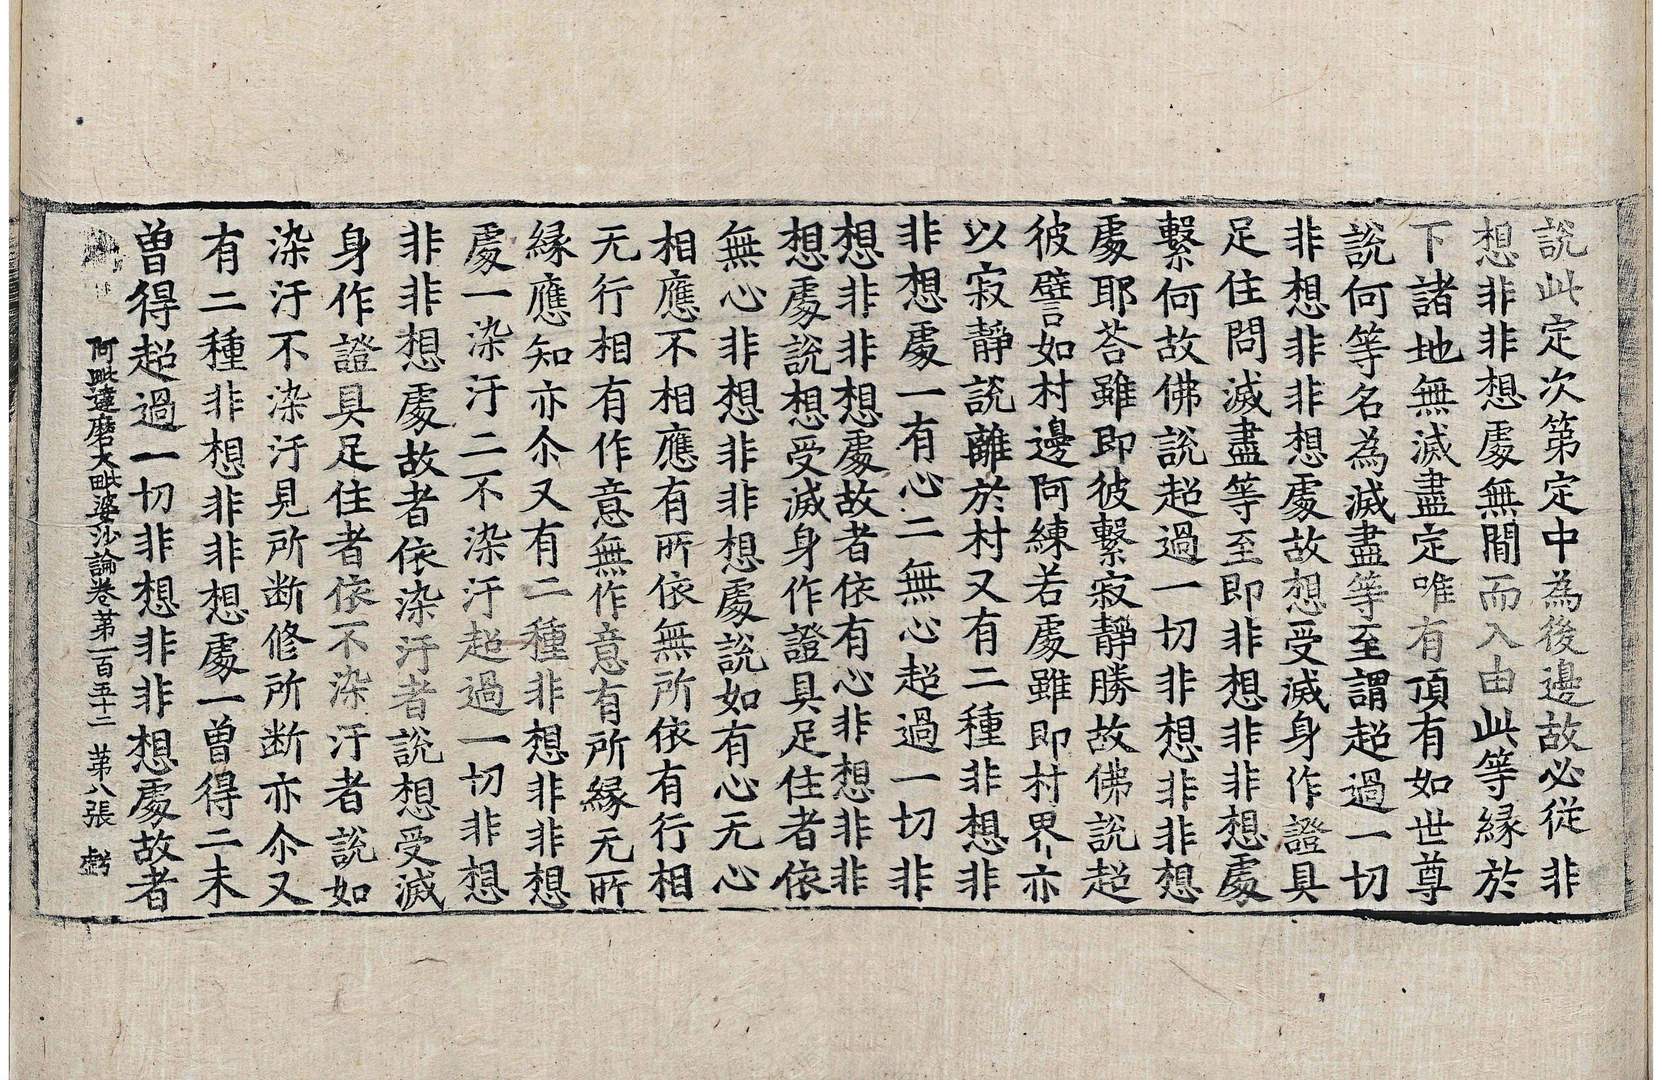 説此定次第定中為後邊故必從非
想非非想處無閒而入由此等緣於
下諸地無滅盡定唯有頂有如世尊
説何等名為滅盡等至謂超過一切
非想非非想處故想受滅身作證具
足住問滅盡等至即非想非非想處
繫何故佛説超過一切非想非非想
處耶荅雖即彼繫寂靜勝故佛説超
彼譬如村邊阿練若處雖即村界亦
以寂靜説離於村又有二種非想非
非想處一有心二無心超過一切非
想非非想處故者依有心非想非非
想處説想受滅身作證具足住者依
無心非想非非想處説如有心无心
相應不相應有所依無所依有行相
无行相有作意無作意有所緣无所
緣應知亦尒又有二種非想非非想
處一染汙二不染汙超過一切非想
非非想處故者依染汙者説想受滅
身作證具足住者依不染汙者説如
染汙不染汙見所断修所断亦尒又
有二種非想非非想處一曽得二未
曽得超過一切非想非非想處故者
阿毗達磨大毗婆沙論卷第一百五十二 第八張 虧